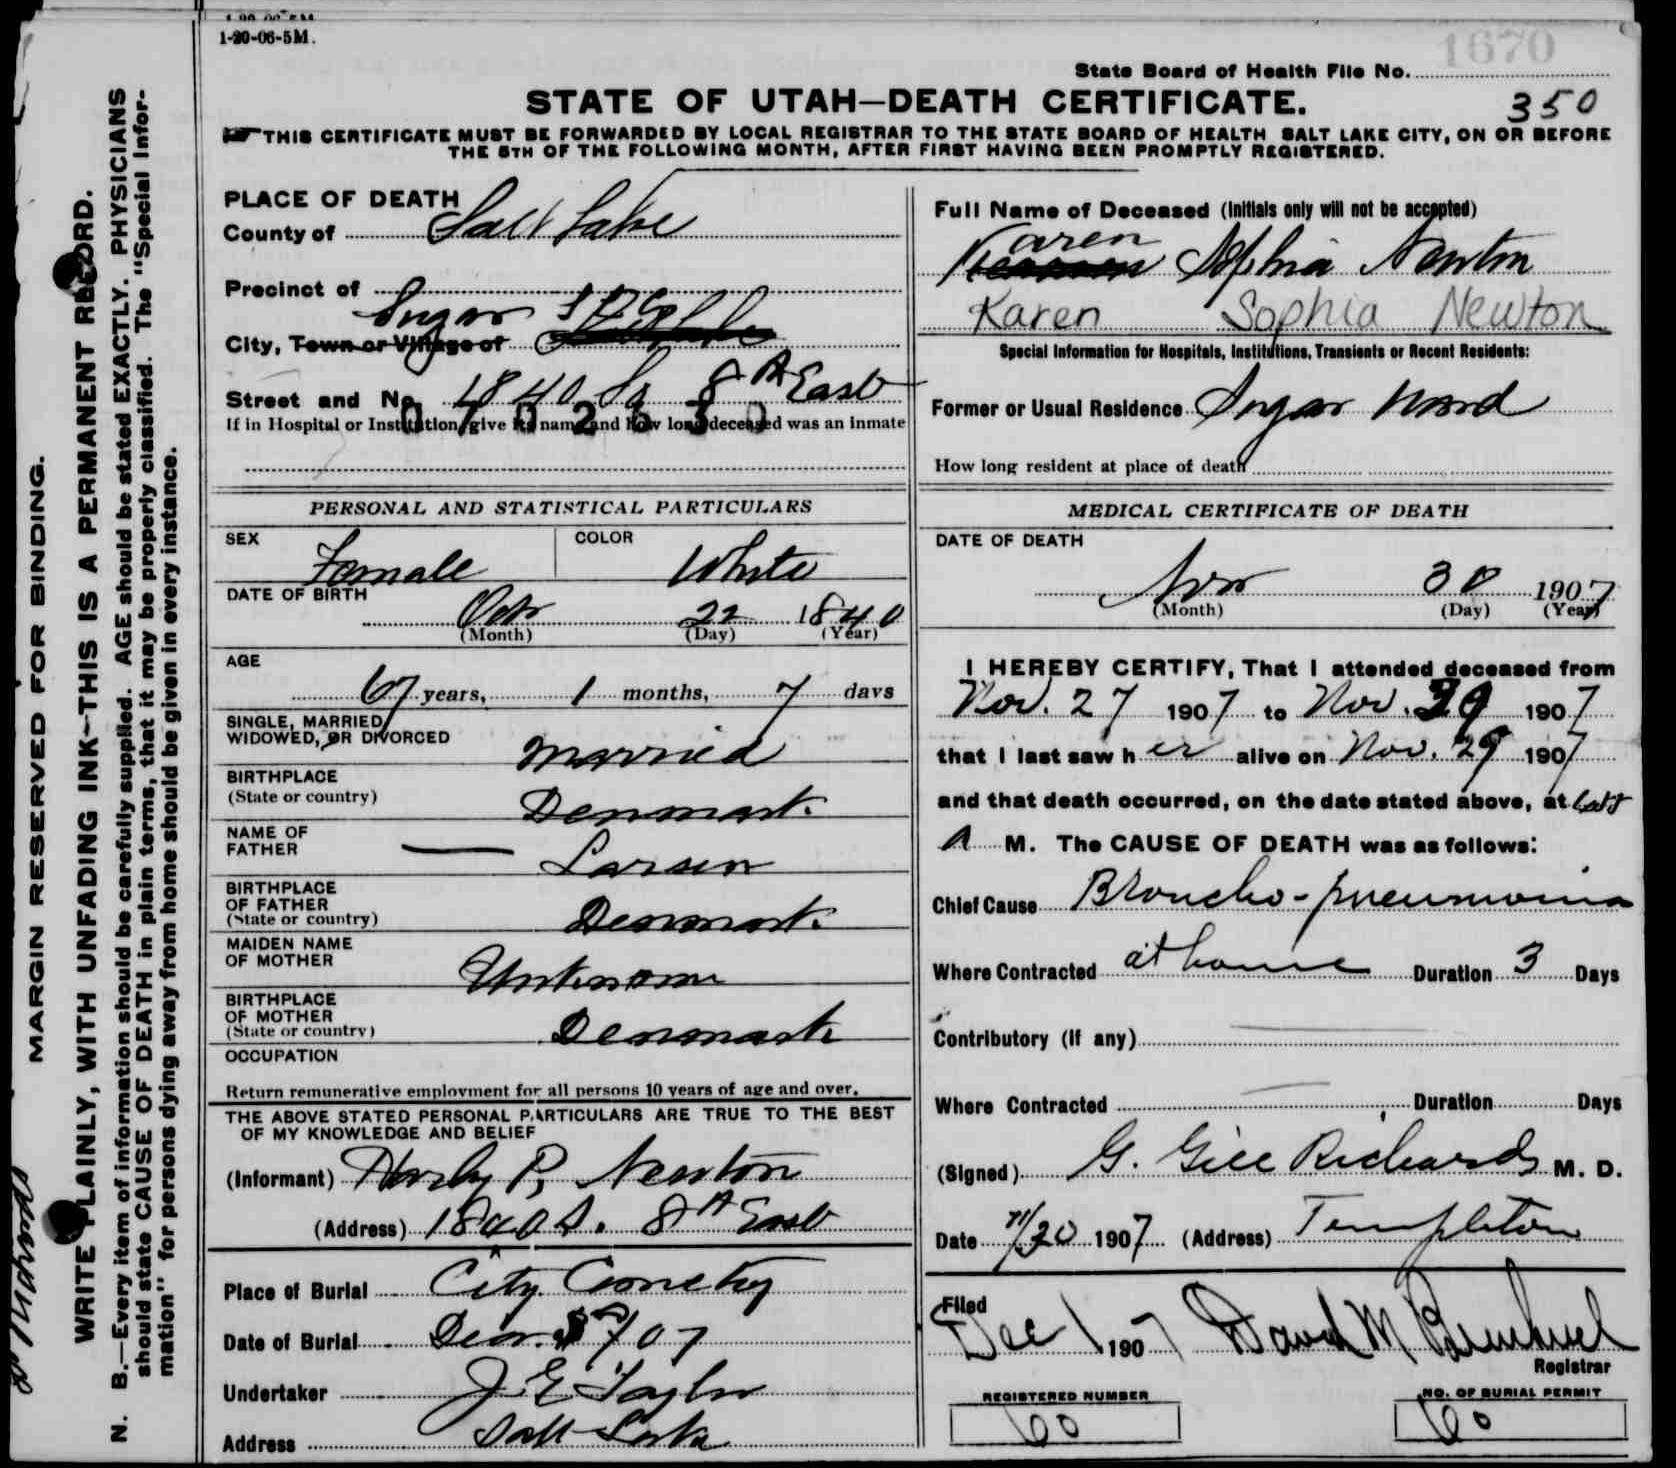 1-20-06-5M.
1670
State Board of Health File No.
STATE OF UTAH—DEATH CERTIFICATE.
350
THIS CERTIFICATE MUST BE FORWARDED BY LOCAL REGISTRAR TO THE STATE BOARD OF HEALTH SALT LAKE CITY, ON OR BEFORE
THE 5TH OF THE FOLLOWING MONTH, AFTER FIRST HAVING BEEN PROMPTLY REGISTERED.
MARGIN RESERVED FOR BINDING.
WRITE PLAINLY, WITH UNFADING INK—THIS IS A PERMANENT RECORD.
N. B.—Every item of information should be carefully supplied. AGE should be stated EXACTLY. PHYSICIANS
should state CAUSE OF DEATH in plain terms, that it may be properly classified. The "Special Infor-
mation" for persons dying away from home should be given in every instance.
PLACE OF DEATH
County of Salt Lake
Precinct of
Sugar
City, Town or Village of
Street and No. 1840 So 8th East
If in Hospital or Institution, give its name and how long deceased was an inmate
PERSONAL AND STATISTICAL PARTICULARS
SEX Female COLOR White
DATE OF BIRTH
Oct 22 1840
(Month) (Day) (Year)
AGE
67 years, 1 months, 7 days
SINGLE, MARRIED
WIDOWED, OR DIVORCED Married
BIRTHPLACE
(State or country) Denmark
NAME OF
FATHER — Larsen
BIRTHPLACE
OF FATHER
(State or country) Denmark
MAIDEN NAME
OF MOTHER Unknown
BIRTHPLACE
OF MOTHER
(State or country) Denmark
OCCUPATION
Return remunerative employment for all persons 10 years of age and over.
THE ABOVE STATED PERSONAL PARTICULARS ARE TRUE TO THE BEST
OF MY KNOWLEDGE AND BELIEF
(Informant) P. Newton
(Address) 1840 S. 8th East
Place of Burial City Cemetery
Date of Burial
Undertaker J E Taylor
Address Salt Lake
Full Name of Deceased (Initials only will not be accepted)
Karen Sophia Newton
Karen Sophia Newton
Special Information for Hospitals, Institutions, Transients or Recent Residents:
Former or Usual Residence Sugar Ward
How long resident at place of death
MEDICAL CERTIFICATE OF DEATH
DATE OF DEATH
Nov 30 1907
(Month) (Day) (Year)
I HEREBY CERTIFY, That I attended deceased from
Nov. 27 1907 to Nov. 29 1907
that I last saw her alive on Nov. 29 1907
and that death occurred, on the date stated above, at
A M. The CAUSE OF DEATH was as follows:
Chief Cause Broncho-pneumonia
Where Contracted at home Duration 3 Days
Contributory (If any)
Where Contracted Duration Days
(Signed) G. Gill Richards M. D.
Date 11/30 1907 (Address) Templeton
Filed
Dec 1 1907 David M
Registrar
REGISTERED NUMBER
60
NO. OF BURIAL PERMIT
60